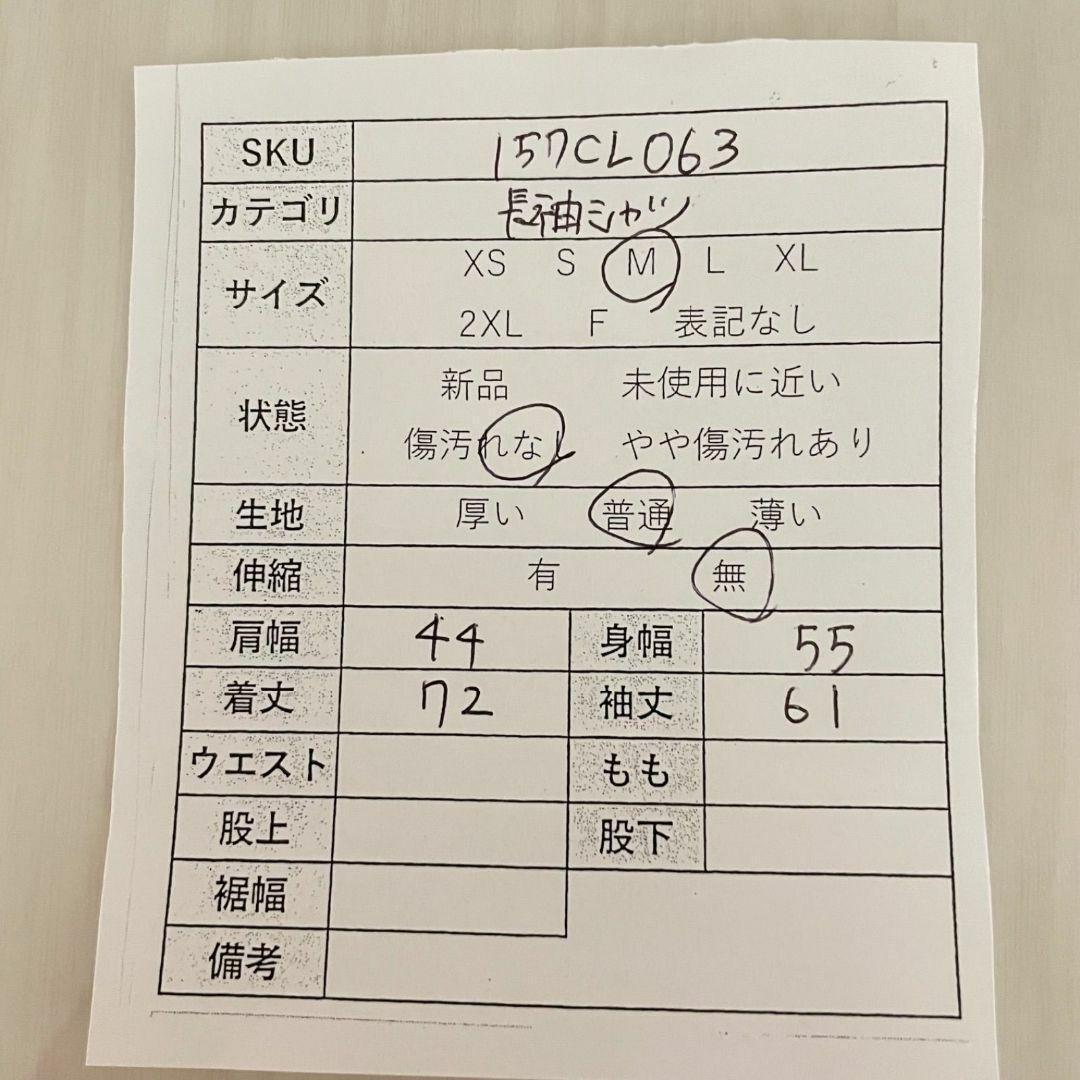 SKU 157CL063
カテゴリ 長袖シャツ
サイズ XS S M L XL
2XL F 表記なし
状態 新品 未使用に近い
傷汚れなし やや傷汚れあり
生地 厚い 普通 薄い
伸縮 有 無
肩幅 44 身幅 55
着丈 72 袖丈 61
ウエスト もも
股上 股下
裾幅
備考